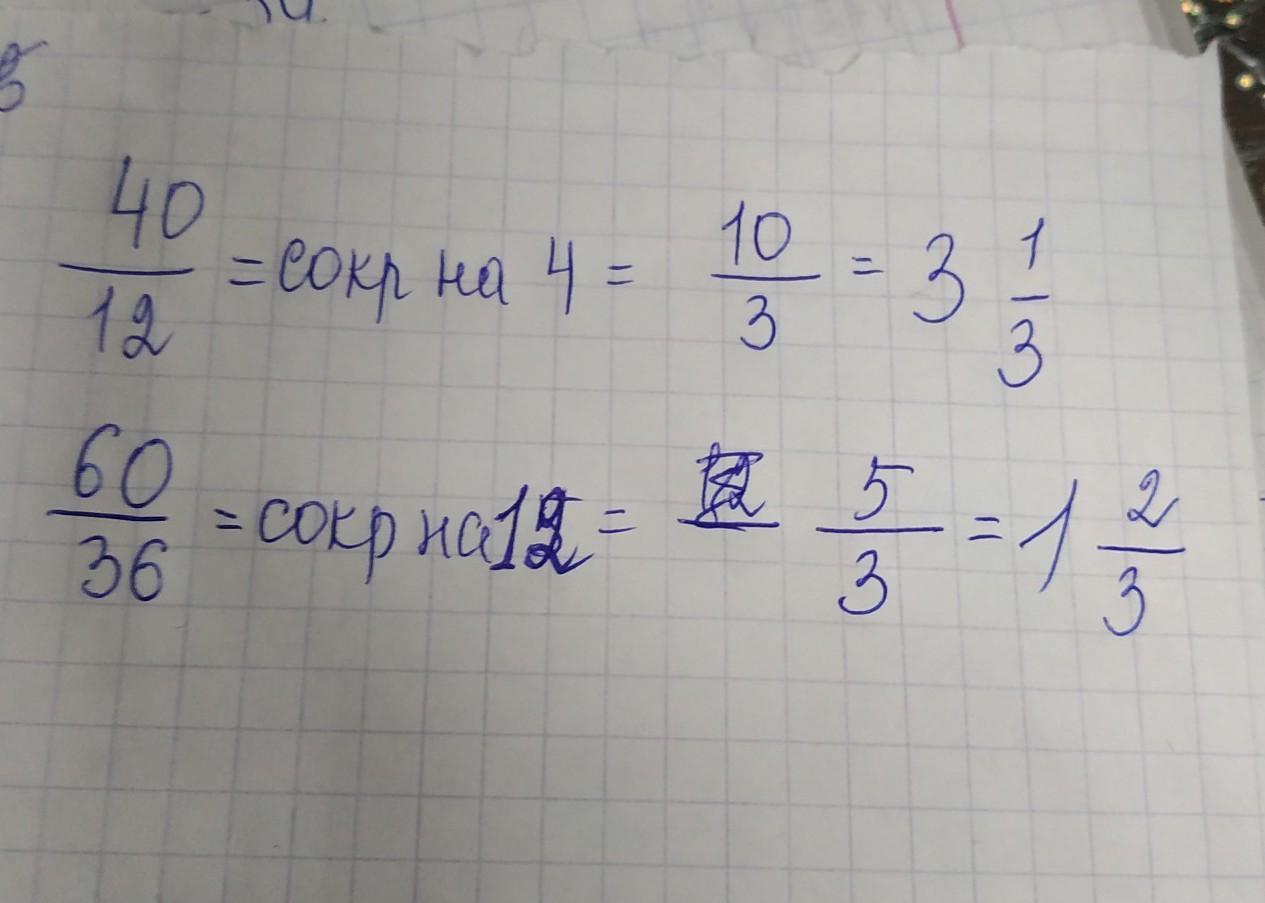 40/12 = сокр на 4 = 10/3 = 3 1/3
60/36 = сокр на 12 = 5/3 = 1 2/3